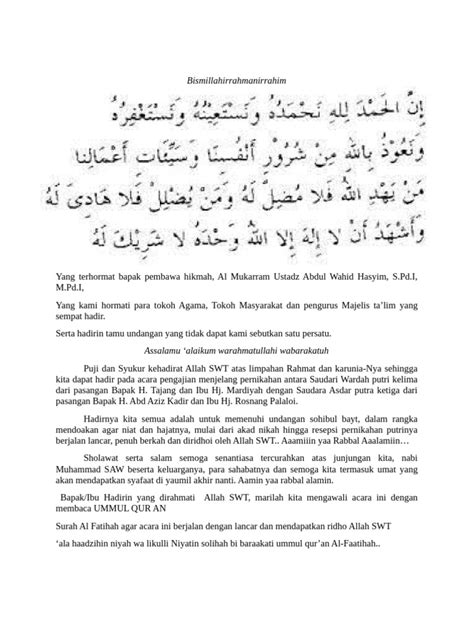 Bismillahirrahmanirrahim
إِنَّ الْحَمْدَ لِلَّهِ نَحْمَدُهُ وَنَسْتَعِيْنُهُ وَنَسْتَغْفِرُهُ
وَنَعُوْذُ بِاللهِ مِنْ شُرُوْرِ أَنْفُسِنَا وَسَيِّئَاتِ أَعْمَالِنَا
مَنْ يَهْدِ اللهُ فَلَا مُضِلَّ لَهُ وَمَنْ يُضْلِلْ فَلَا هَادِيَ لَهُ
وَأَشْهَدُ أَنْ لَا إِلَهَ إِلَّا اللهُ وَحْدَهُ لَا شَرِيْكَ لَهُ
Yang terhormat bapak pembawa hikmah, Al Mukarram Ustadz Abdul Wahid Hasyim, S.Pd.I,
M.Pd.I,
Yang kami hormati para tokoh Agama, Tokoh Masyarakat dan pengurus Majelis ta’lim yang
sempat hadir.
Serta hadirin tamu undangan yang tidak dapat kami sebutkan satu persatu.
Assalamu ‘alaikum warahmatullahi wabarakatuh
Puji dan Syukur kehadirat Allah SWT atas limpahan Rahmat dan karunia-Nya sehingga
kita dapat hadir pada acara pengajian menjelang pernikahan antara Saudari Wardah putri kelima
dari pasangan Bapak H. Tajang dan Ibu Hj. Mardiyah dengan Saudara Asdar putra ketiga dari
pasangan Bapak H. Abd Aziz Kadir dan Ibu Hj. Rosnang Palaloi.
Hadirnya kita semua adalah untuk memenuhi undangan sohibul bayt, dalam rangka
mendoakan agar niat dan hajatnya, mulai dari akad nikah hingga resepsi pernikahan putrinya
berjalan lancar, penuh berkah dan diridhoi oleh Allah SWT.. Aaamiiin yaa Rabbal Aaalamiin…
Sholawat serta salam semoga senantiasa tercurahkan atas junjungan kita, nabi
Muhammad SAW beserta keluarganya, para sahabatnya dan semoga kita termasuk umat yang
akan mendapatkan syafaat di yaumil akhir nanti. Aamin yaa rabbal alamin.
Bapak/Ibu Hadirin yang dirahmati Allah SWT, marilah kita mengawali acara ini dengan
membaca UMMUL QUR AN
Surah Al Fatihah agar acara ini berjalan dengan lancar dan mendapatkan ridho Allah SWT
‘ala haadzihin niyah wa likulli Niyatin solihah bi baraakati ummul qur’an Al-Faatihah..